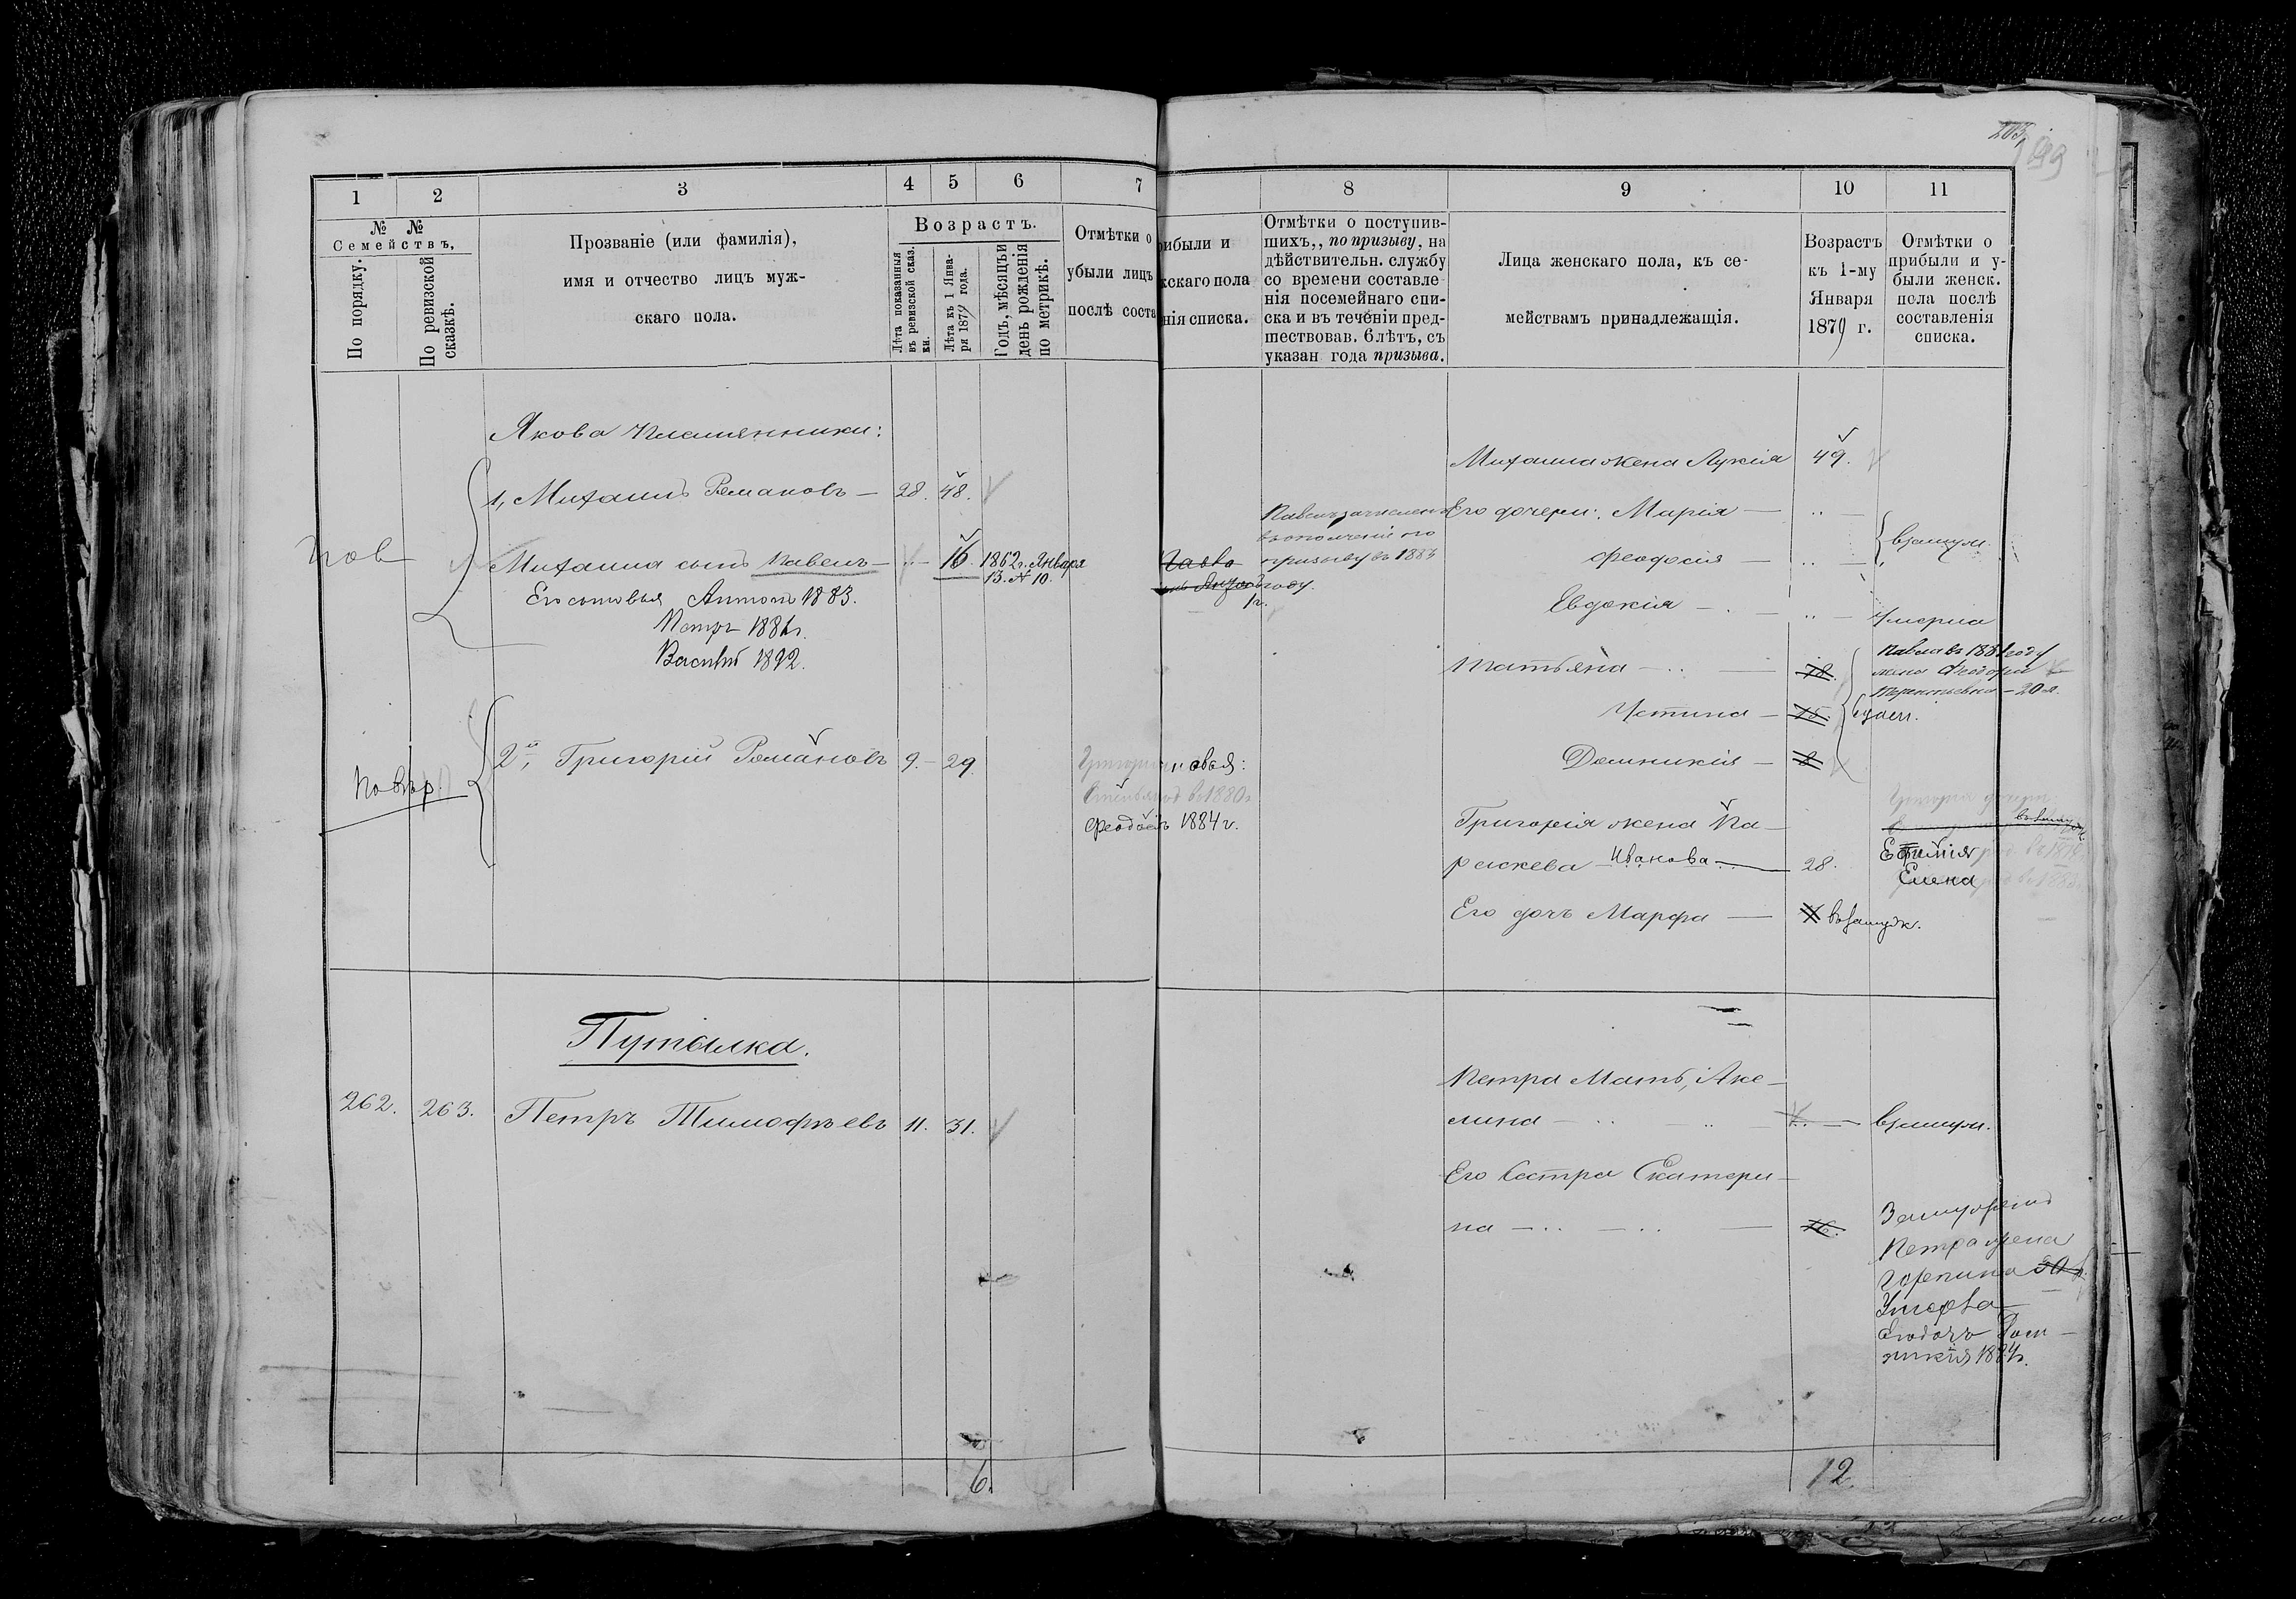 203
199
1
2
3
4
5
6
7
№ №
Семействъ,
По порядку.
По ревизской
сказкѣ.
Прозваніе (или фамилія),
имя и отчество лицъ муж-
скаго пола.
Возрастъ.
Лѣта показанныя
въ ревизской сказ.
ки.
Лѣта къ 1 Янва-
ря 1879 года.
Годъ, мѣсяцъ и
день рожденія
по метрикѣ.
Отмѣтки о
убыли лицъ
послѣ соста
Якова племянники:
1, Михаилъ Романовъ — 28. 48.
Пов
Михаила сынъ Павелъ — 16. 1862 г. Января
13. № 10.
Его сыновья Антонъ 1883.
Петръ 1886 г.
Василій 1892.
2й, Григорій Романовъ 9. — 29.
Повѣр.
Путалка.
262. 263. Петръ Тимофѣевъ 11. 31.
6.
8
9
10
11
рибыли и
жскаго пола
нія списка.
Отмѣтки о поступив-
шихъ,, по призыву, на
дѣйствительн. службу
со времени составле
нія посемейнаго спи-
ска и въ теченіи пред-
шествовав. 6 лѣтъ, съ
указан года призыва.
Лица женскаго пола, къ се-
мействамъ принадлежащія.
Возрастъ
къ 1-му
Января
1879 г.
Отмѣтки о
прибыли и у-
были женск.
пола послѣ
составленія
списка.
Михаила жена Лукія 49.
Павелъ зачисленъ
въ ополченіе по
призыву въ 1883
году.
Его дочери: Марія —
Феодосія —
взамуж.
Евдокія — Умерла
Татьяна — 18.
Павла въ 1881 году
жена Феодора
Терентьевна — 20 л.
Устина — 15.
Домникія — 8
новья:
въ 1880 г.
Феодосій 1884 г.
Григорія жена Па-
раскева Иванова — 28.
Ефимія
Елена
Его дочь Марфа — въ замуж.
Петра Мать, Аке-
лина — взамуж.
Его Сестра Екатери-
на — 16.
Замужемъ
Петра жена
Его дочь Дом-
никія 1884 г.
12.